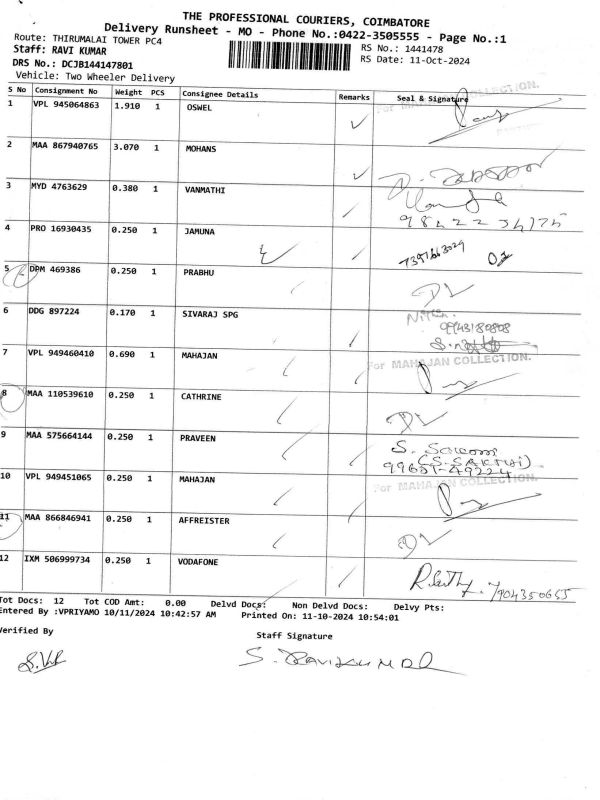 THE PROFESSIONAL COURIERS, COIMBATORE
Delivery Runsheet - MO - Phone No.:0422-3505555 - Page No.:1
Route: THIRUMALAI TOWER PC4
RS No.: 1441478
Staff: RAVI KUMAR
RS Date: 11-Oct-2024
DRS No.: DCJB144147801
Vehicle: Two Wheeler Delivery
S No Consignment No Weight PCS Consignee Details Remarks Seal & Signature
1 VPL 945064863 1.910 1 OSWEL
For MAHAJAN COLLECTION.
2 MAA 867940765 3.070 1 MOHANS
3 MYD 4763629 0.380 1 VANMATHI
4 PRO 16930435 0.250 1 JAMUNA
7397663029
5 DPM 469386 0.250 1 PRABHU
DL
6 DDG 897224 0.170 1 SIVARAJ SPG
Nithin
9943180808
7 VPL 949460410 0.690 1 MAHAJAN
For MAHAJAN COLLECTION.
8 MAA 110539610 0.250 1 CATHRINE
DL
9 MAA 575664144 0.250 1 PRAVEEN
(S.SAKTHI)
99659-49224
10 VPL 949451065 0.250 1 MAHAJAN
For MAHAJAN COLLECTION.
11 MAA 866846941 0.250 1 AFFREISTER
DL
12 IXM 506999734 0.250 1 VODAFONE
7904350655
Tot Docs: 12 Tot COD Amt: 0.00 Delvd Docs: Non Delvd Docs: Delvy Pts:
Entered By :VPRIYAMO 10/11/2024 10:42:57 AM Printed On: 11-10-2024 10:54:01
Verified By
Staff Signature
S. RAVIKUMAR